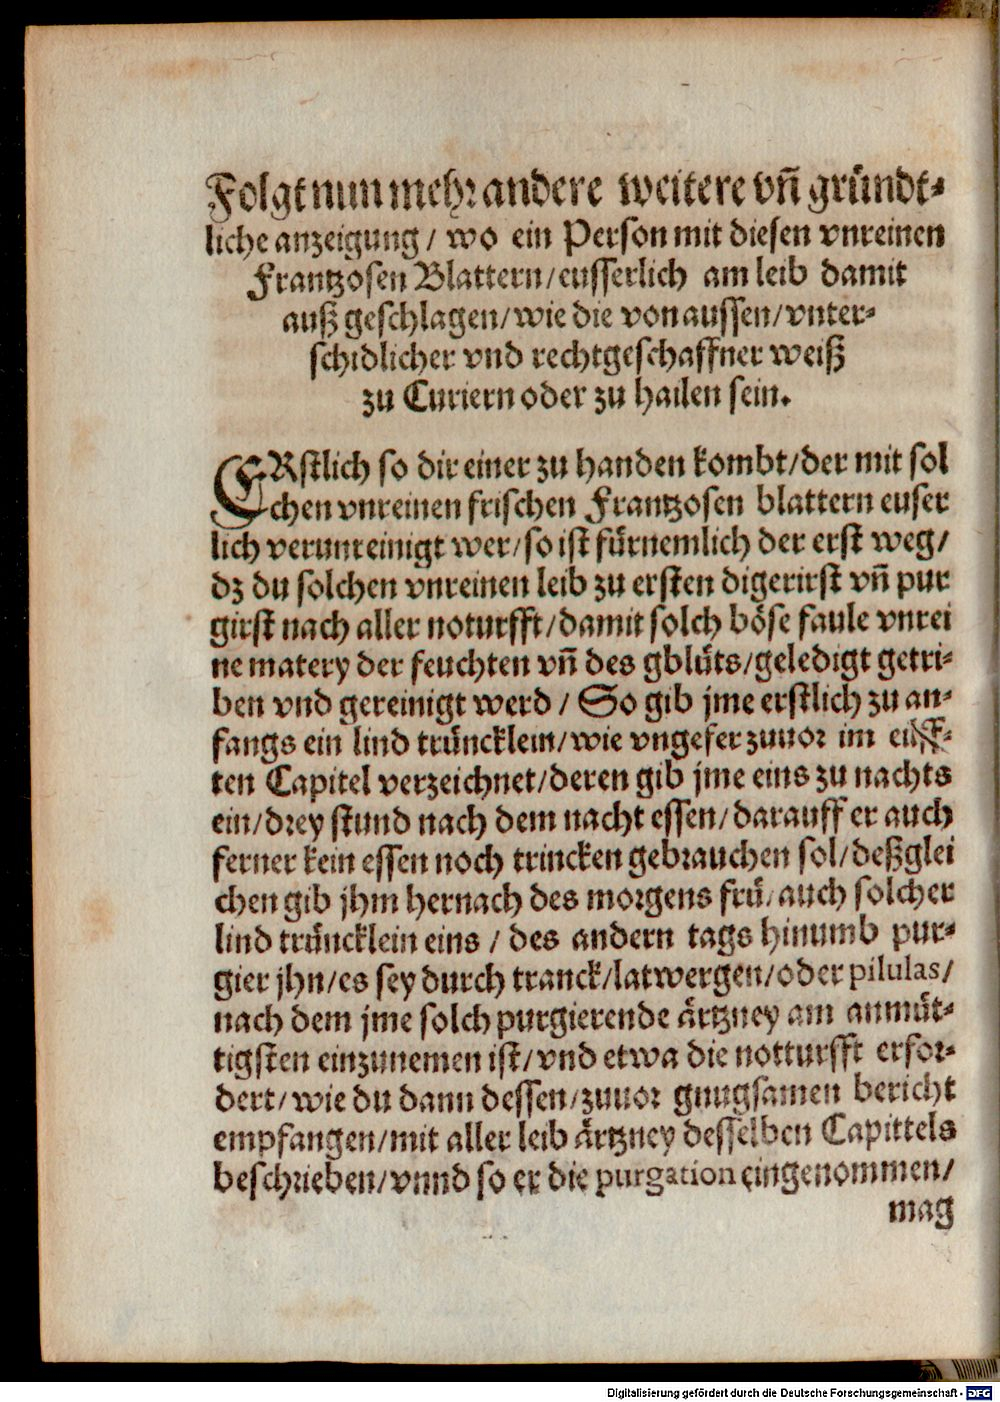 Folgt nun mehr andere weitere vn̄ gründt-
liche anzeigung / wo ein Person mit diesen vnreinen
Frantzosen Blattern / eusserlich am leib damit
auß geschlagen / wie die von aussen / vnter-
schidlicher vnd rechtgeschaffner weiß
zu Curiern oder zu hailen sein.
ERstlich so dir einer zu handen kombt / der mit sol
chen vnreinen frischen Frantzosen blattern euser
lich verunreinigt wer / so ist fürnemlich der erst weg /
dz du solchen vnreinen leib zu ersten digerirst vn̄ pur
girst nach aller noturfft / damit solch böse faule vnrei
ne matery der feuchten vn̄ des gblüts / geledigt getri-
ben vnd gereinigt werd / So gib jme erstlich zu an-
fangs ein lind trüncklein / wie vngefer zuuor im eilff-
ten Capitel verzeichnet / deren gib jme eins zu nachts
ein / drey stund nach dem nacht essen / darauff er auch
ferner kein essen noch trincken gebrauchen sol / deßglei
chen gib jhm hernach des morgens frü / auch solcher
lind trüncklein eins / des andern tags hinumb pur-
gier jhn / es sey durch tranck / latwergen / oder pilulas /
nach dem jme solch purgierende ärtzney am anmüt-
tigsten einzunemen ist / vnd etwa die notturfft erfor-
dert / wie du dann dessen / zuuor gnugsamen bericht
empfangen / mit aller leib ärtzney desselben Capittels
beschrieben / vnnd so er die purgation eingenommen /
mag
Digitalisierung gefördert durch die Deutsche Forschungsgemeinschaft - DFG